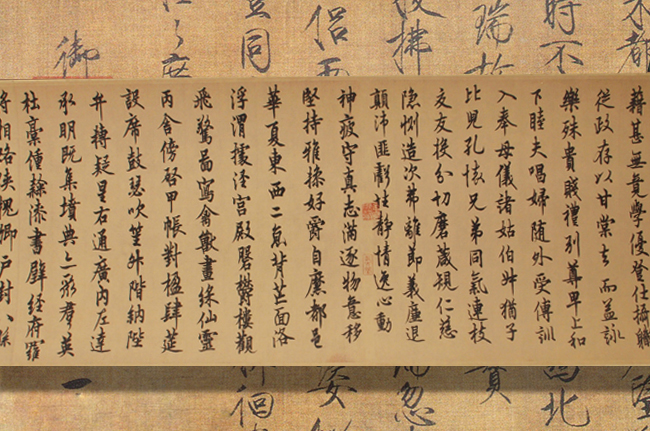 藉甚無竟學優登仕攝職
從政存以甘棠去而益詠
樂殊貴賤禮別尊卑上和
下睦夫唱婦隨外受傅訓
入奉母儀諸姑伯叔猶子
比兒孔懷兄弟同氣連枝
交友投分切磨箴規仁慈
隱惻造次弗離節義廉退
顛沛匪虧性靜情逸心動
神疲守真志滿逐物意移
堅持雅操好爵自縻都邑
華夏東西二京背芒面洛
浮渭據涇宮殿磐鬱樓觀
飛驚圖寫禽獸畫綵仙靈
丙舍傍啓甲帳對楹肆筵
設席鼓瑟吹笙升階納陛
弁轉疑星右通廣內左達
承明既集墳典亦聚群英
杜稾鍾隸漆書壁經府羅
將相路俠槐卿戶封八縣
都
時不
北
瑞
拂
忽
侶
同
徊
御
一